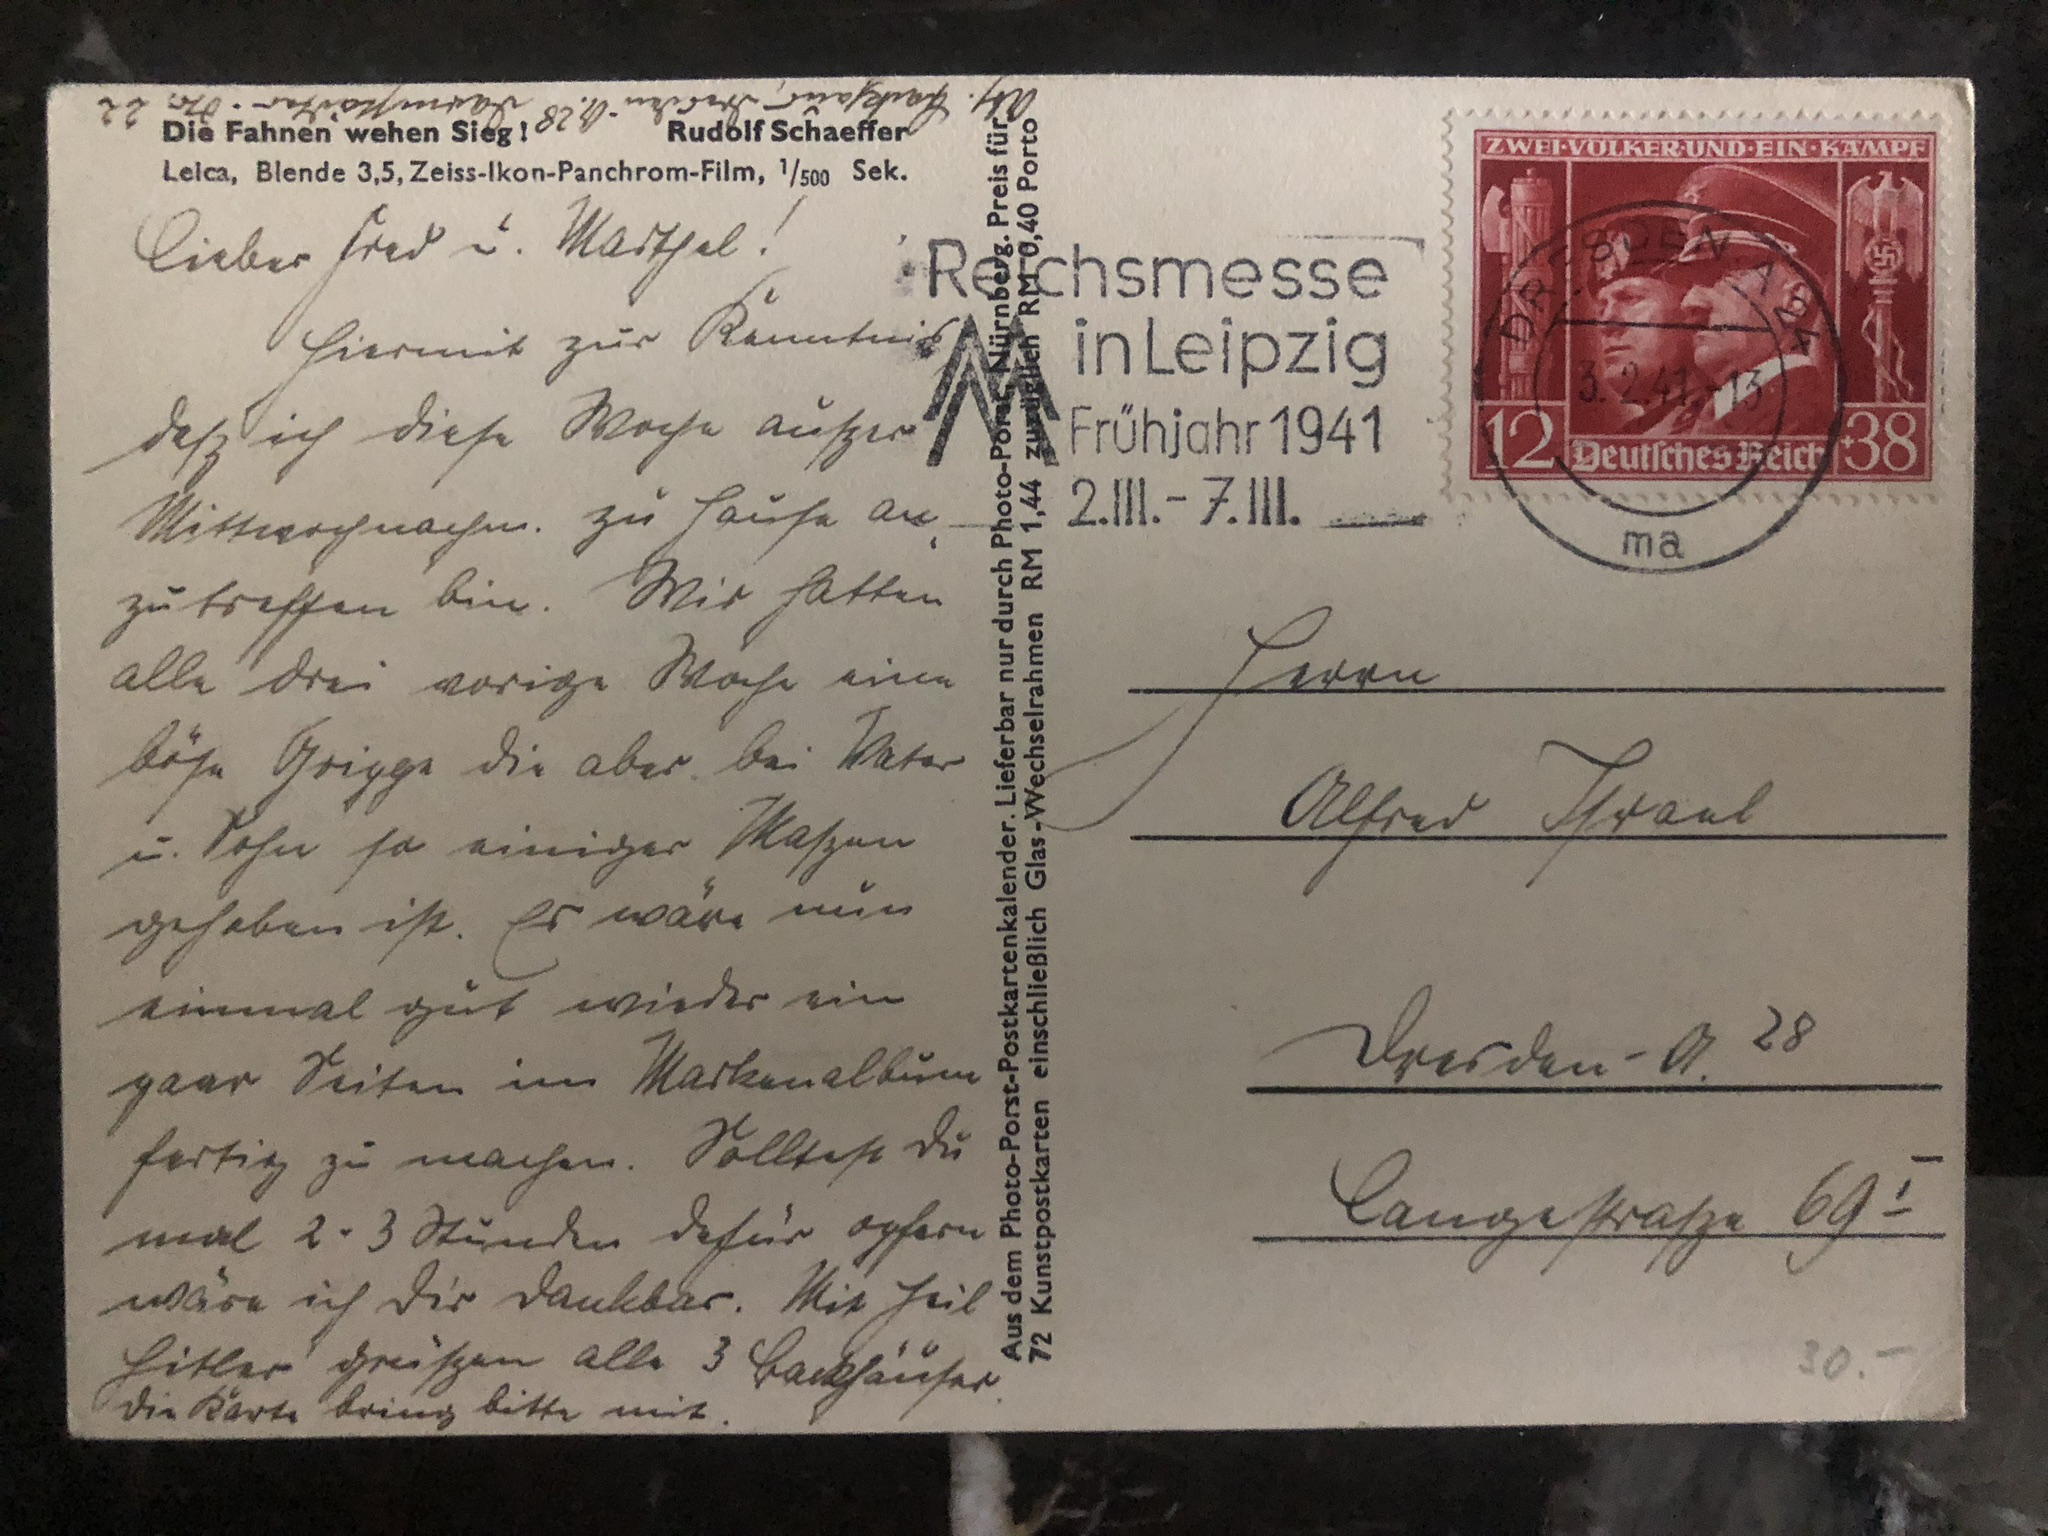 Abs. Backhaus, Dresden-A. 28 No. 22
Die Fahnen wehen Sieg! Rudolf Schaeffer
Leica, Blende 3,5, Zeiss-Ikon-Panchrom-Film, 1/500 Sek.
Lieber Fred u. Marthel!
Hiermit zur Kenntnis
daß ich diese Woche außer
Mittwochnachm. zu Hause an-
zutreffen bin. Wir hatten
alle drei vorige Woche eine
böse Grippe die aber bei Vater
u. Sohn so einiger Maßen
gehoben ist. Es wäre nun
einmal gut wieder ein
paar Seiten im Markenalbum
fertig zu machen. Solltest Du
mal 2-3 Stunden dafür opfern
wäre ich Dir dankbar. Mit Heil
Hitler grüßen alle 3 Backhäuser.
Die Karte bring bitte mit.
Aus dem Photo-Porst-Postkartenkalender. Lieferbar nur durch Photo-Porst, Nürnberg. Preis für
72 Kunstpostkarten einschließlich Glas-Wechselrahmen RM 1,44 zuzüglich RM 0,40 Porto
Reichsmesse
in Leipzig
Frühjahr 1941
2.III.-7.III.
ZWEI·VÖLKER·UND·EIN·KAMPF
12 Deutsches Reich +38
DRESDEN A 24
3.2.41.-13
ma
Herrn
Alfred Israel
Dresden-A. 28
Langestraße 69 I
30.-